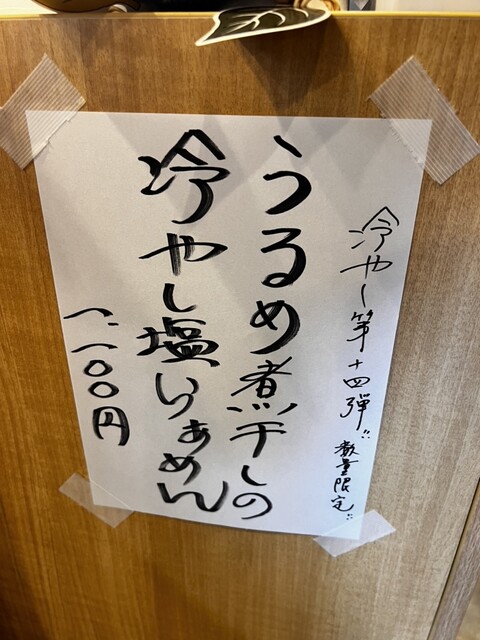 冷やし第十四弾!! 数量限定!!
うるめ煮干しの
冷やし塩らぁめん
一、一〇〇円